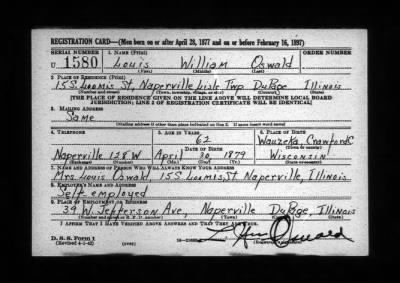 REGISTRATION CARD—(Men born on or after April 28, 1877 and on or before February 16, 1897)
SERIAL NUMBER 1. NAME (Print) ORDER NUMBER
U 1580 Louis William Oswald
(First) (Middle) (Last)
2. PLACE OF RESIDENCE (Print)
15 S. Loomis St, Naperville Lisle Twp DuPage Illinois
(Number and street) (Town, township, village, or city) (County) (State)
[THE PLACE OF RESIDENCE GIVEN ON THE LINE ABOVE WILL DETERMINE LOCAL BOARD
JURISDICTION; LINE 2 OF REGISTRATION CERTIFICATE WILL BE IDENTICAL]
3. MAILING ADDRESS
Same
[Mailing address if other than place indicated on line 2. If same insert word same]
4. TELEPHONE 5. AGE IN YEARS 6. PLACE OF BIRTH
62 Wauzeka, Crawford C.
DATE OF BIRTH (Town or county)
Naperville 128 W April 30, 1879 Wisconsin
(Exchange) (Number) (Mo.) (Day) (Yr.) (State or country)
7. NAME AND ADDRESS OF PERSON WHO WILL ALWAYS KNOW YOUR ADDRESS
Mrs. Louis Oswald, 15 S. Loomis, St. Naperville, Illinois
8. EMPLOYER'S NAME AND ADDRESS
Self employed
9. PLACE OF EMPLOYMENT OR BUSINESS
39 W. Jefferson Ave, Naperville DuPage, Illinois
(Number and street or R. F. D. number) (Town) (County) (State)
I AFFIRM THAT I HAVE VERIFIED ABOVE ANSWERS AND THAT THEY ARE TRUE.
D. S. S. Form 1
(Revised 4-1-42) Oswald